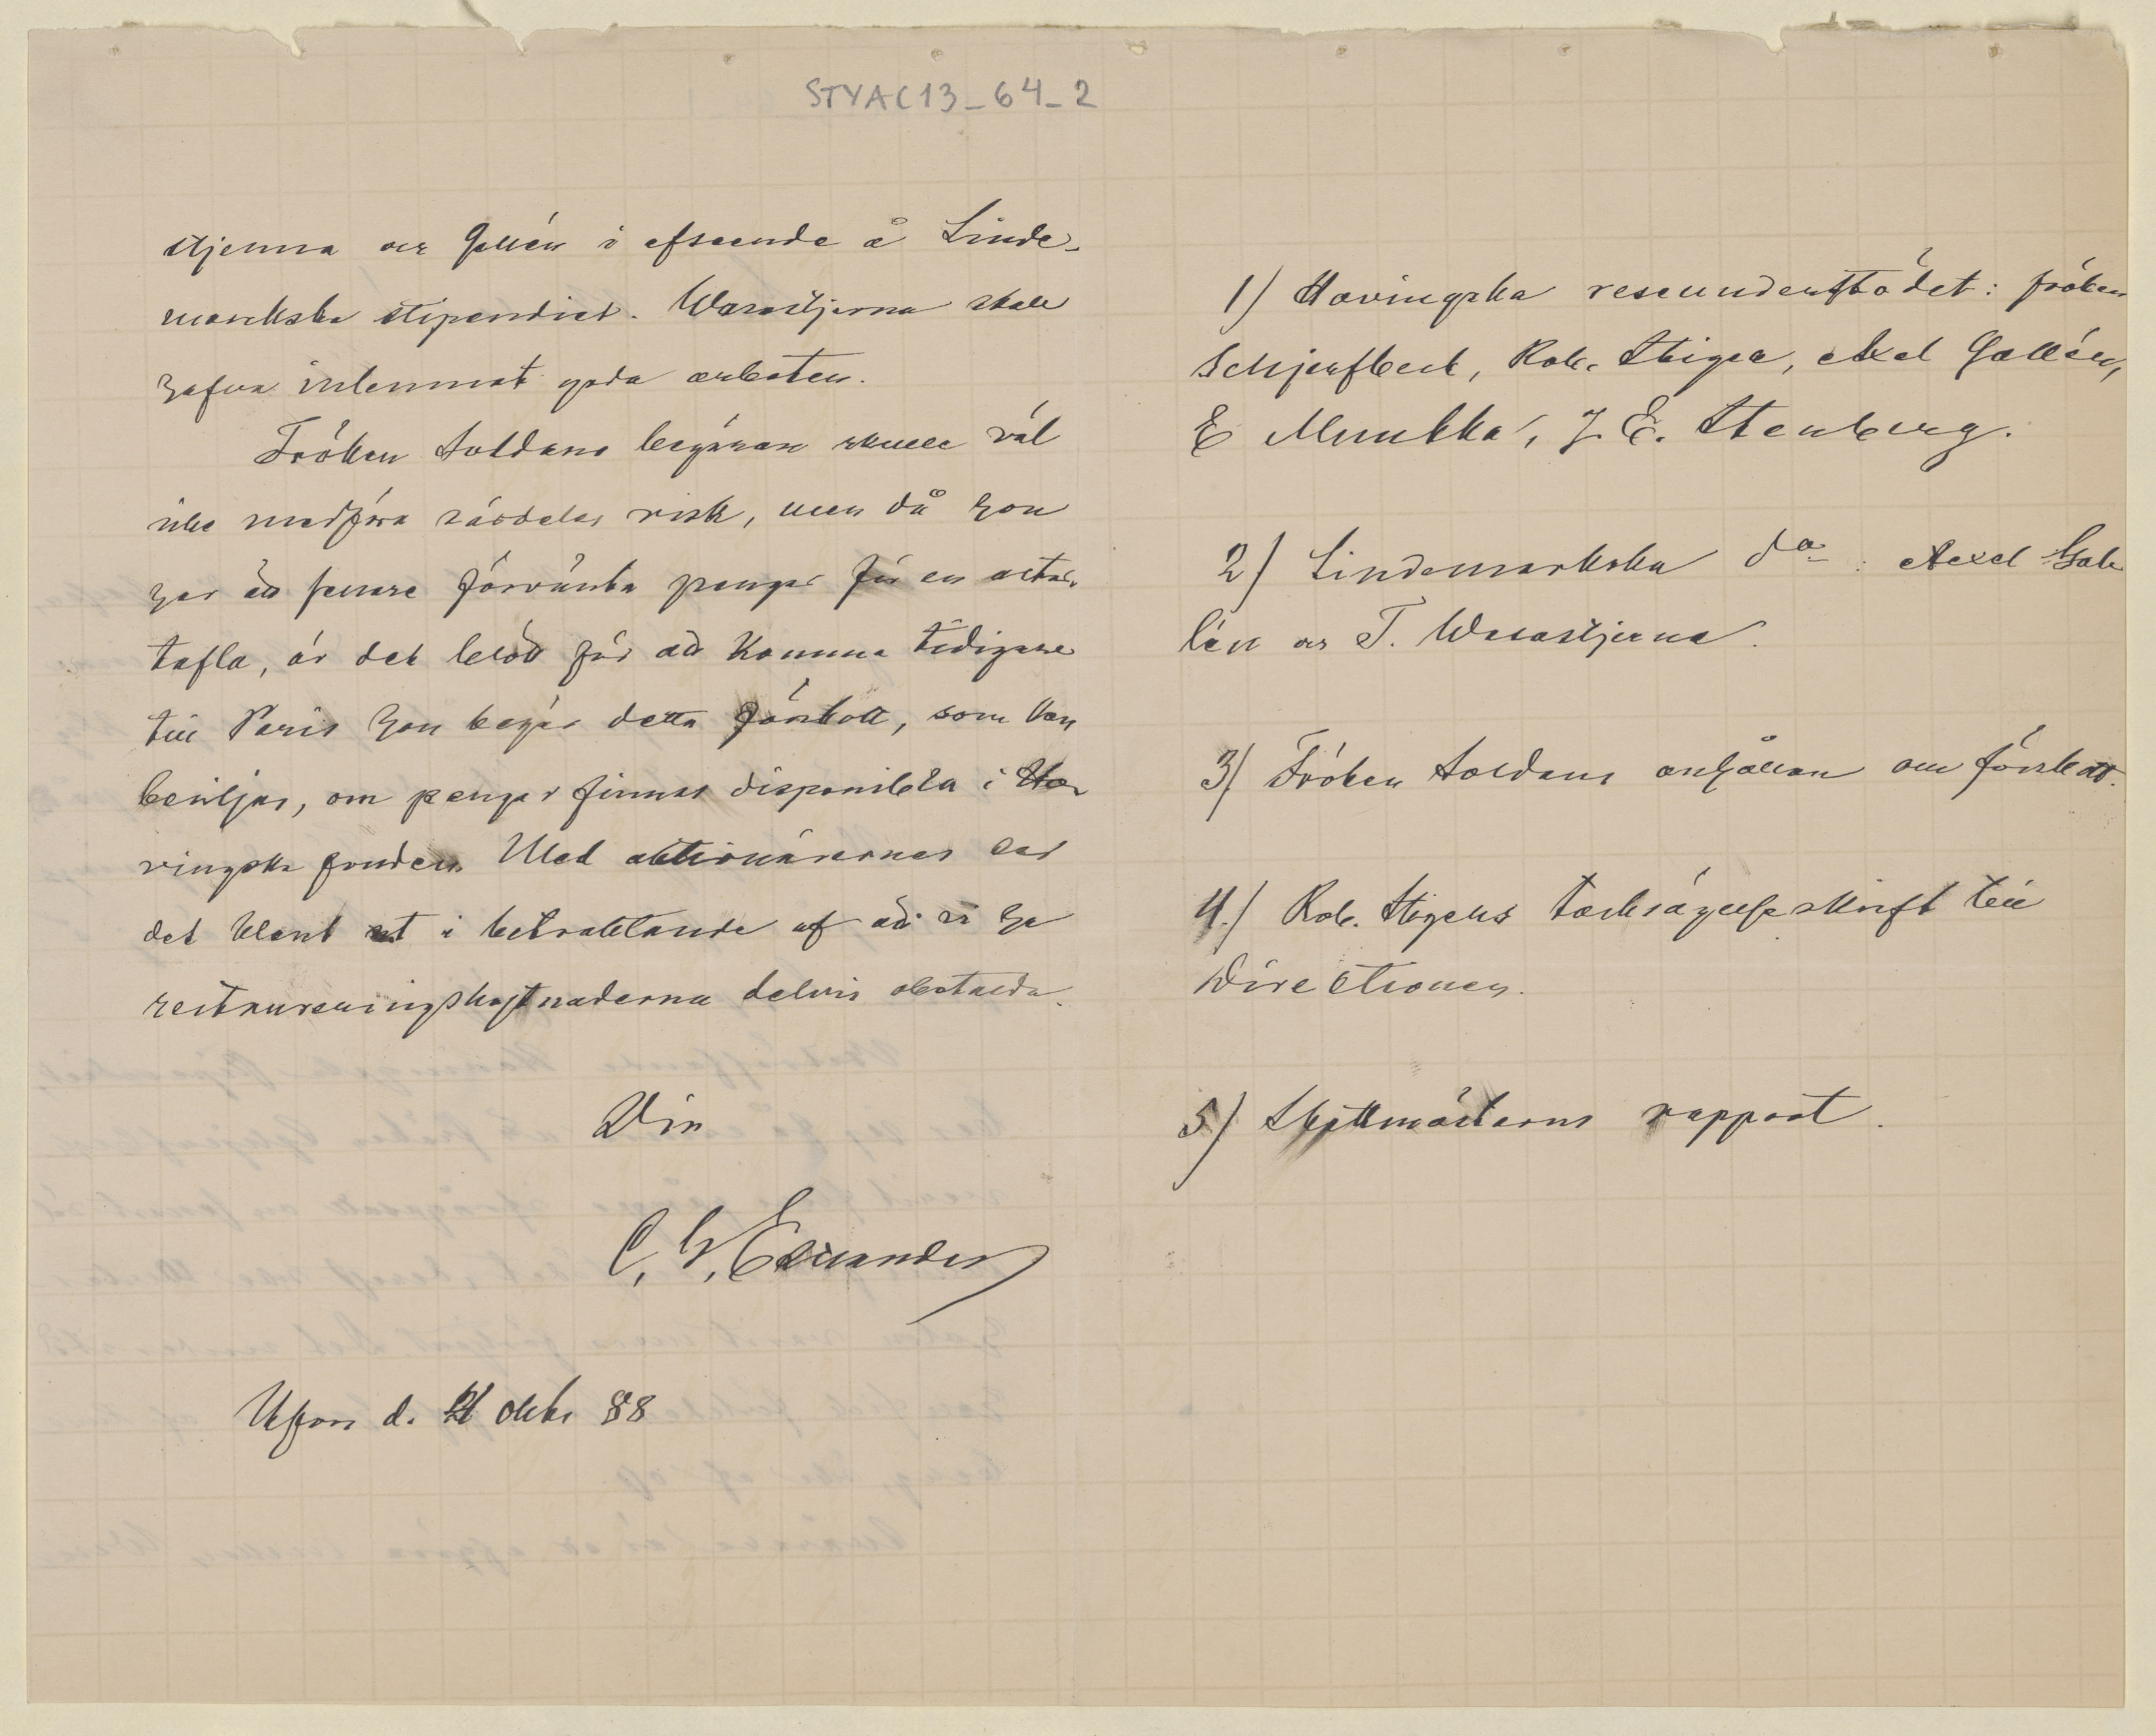 STYAC13_64_2
stjerna och Gallén i afseende å Linde-
markska stipendiet. Wasastjerna skall
hafva inlemnat goda arbeten.
Fröken Soldans begäran skulle väl
icke medföra särdeles risk, men då hon
har att senare förvänta pengar för en
tafla, är det blott för att komma tidigare
till Paris hon begär detta förskott, som kan
beviljas, om pengar finnas disponibla i Ho-
vingska fonden. Med aktionärernas ser
det klent ut i betraktande af att vi ha
restaureringskostnaderna delvis obetalda.
Din
C. G. Estlander
Hfors d. 21 oktbr 88
1) Hovingska reseunderstödet: fröken
Schjerfbeck, Rob. Stigell, Axel Gallén,
E Munkka, J. E. Stenberg.
2) Lindemarkska do : Axel Gal-
lén och T. Wasastjerna.
3) Fröken Soldans anhållan om förskott.
4.) Rob. Stigells tacksägelseskrift till
Direktionen.
5) Skattmästarns rapport.